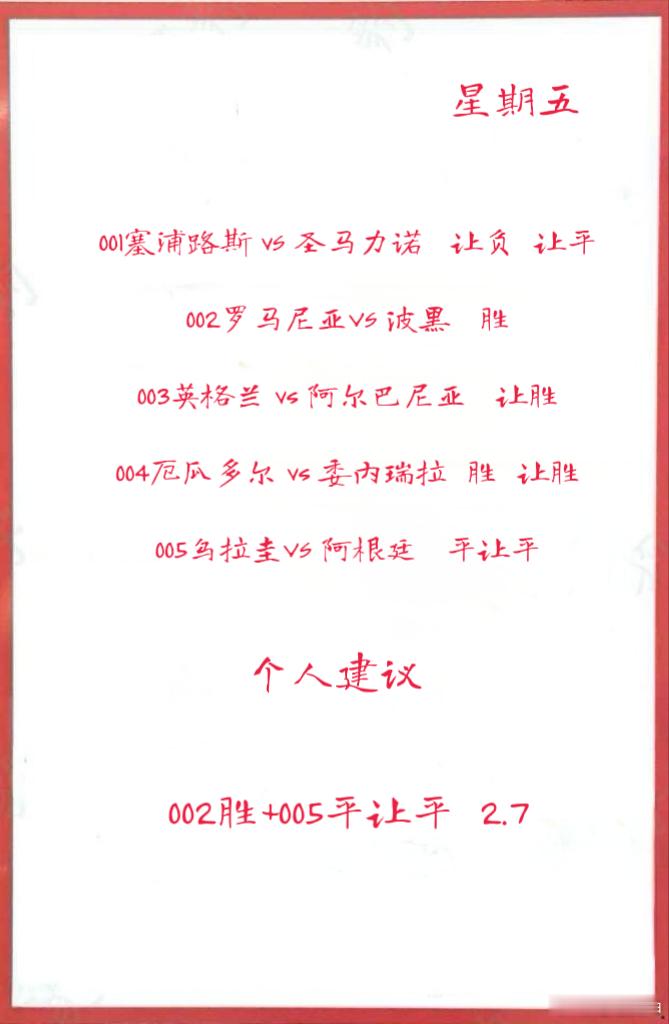 星期五
001塞浦路斯 vs 圣马力诺 让负 让平
002罗马尼亚vs 波黑 胜
003英格兰 vs 阿尔巴尼亚 让胜
004厄瓜多尔 vs 委内瑞拉 胜 让胜
005乌拉圭vs 阿根廷 平让平
个人建议
002胜+005平让平 2.7